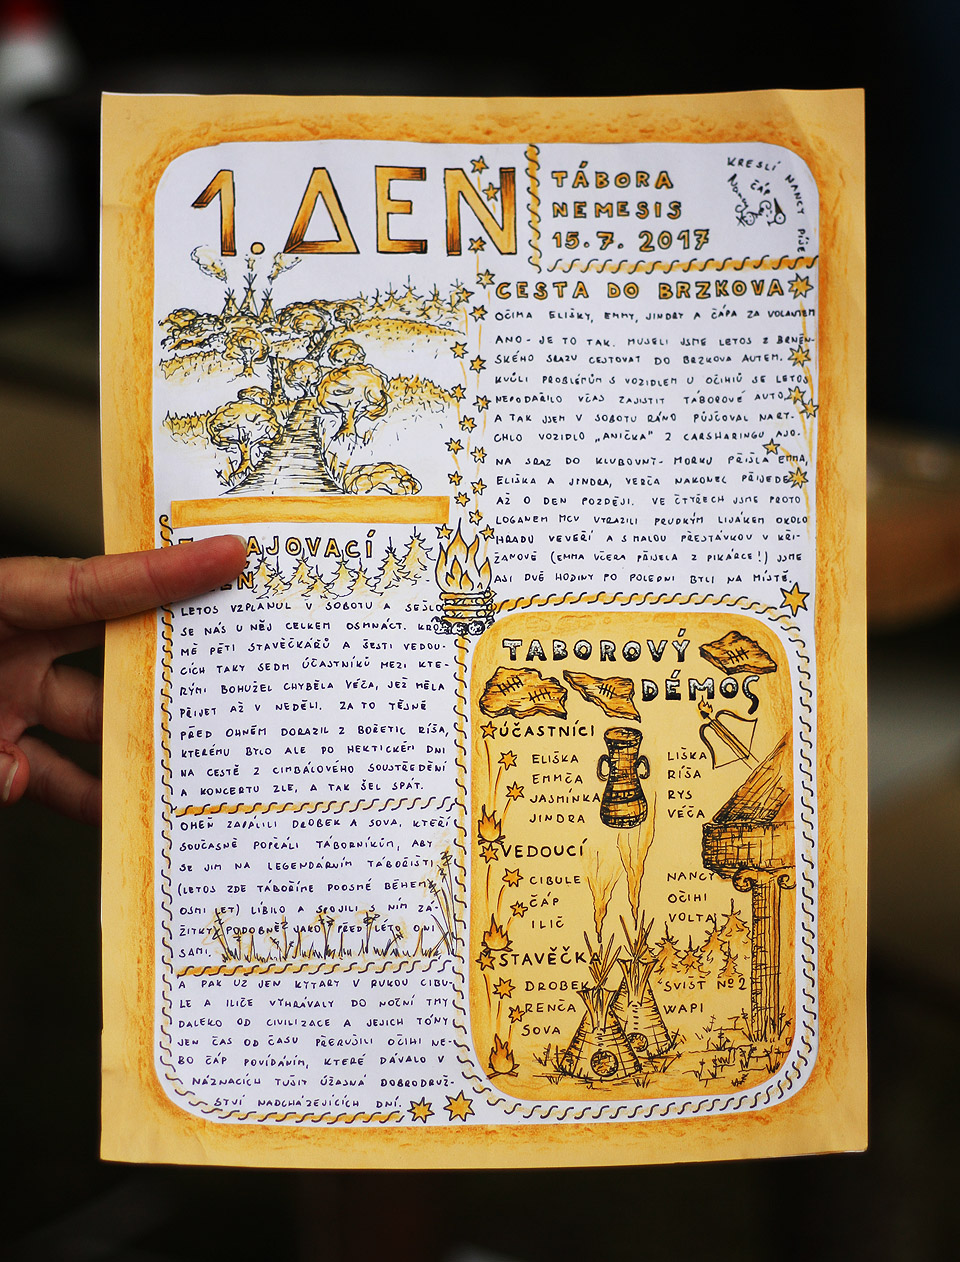 1. ΔEN
TÁBORA
NEMESIS
15.7. 2017
KRESLÍ NANCY PÍŠE
ČÁP
CESTA DO BRZKOVA
OČIMA ELIŠKY, EMMY, JINDRY A ČÁPA ZA VOLANTEM
ANO - JE TO TAK. MUSELI JSME LETOS Z BRNĚN-
SKÉHO SRAZU CESTOVAT DO BRZKOVA AUTEM.
KVŮLI PROBLÉMŮM S VOZIDLEM U OČIHIŮ SE LETOS
NEPODAŘILO VČAS ZAJISTIT TÁBOROVÉ AUTO,
A TAK JSEM V SOBOTU RÁNO PŮJČOVAL NARY-
CHLO VOZIDLO „ANIČKA" Z CARSHARINGU AJO.
NA SRAZ DO KLUBOVNY- MORKU PŘIŠLA EMMA,
ELIŠKA A JINDRA, VERČA NAKONEC PŘIJEDE
AŽ O DEN POZDĚJI. VE ČTYŘECH JSME PROTO
LOGANEM MCV VYRAZILI PRUDKÝM LIJÁKEM OKOLO
HRADU VEVEŘÍ A S MALOU PŘESTÁVKOU V KŘI-
ŽANOVĚ (EMMA VČERA PŘIJELA Z PIKÁRCE!) JSME
ASI DVĚ HODINY PO POLEDNI BYLI NA MÍSTĚ.
AJOVACÍ
LETOS VZPLANUL V SOBOTU A SEŠLO
SE NÁS U NĚJ CELKEM OSMNÁCT. KRO-
MĚ PĚTI STAVĚČKÁŘŮ A ŠESTI VEDOU-
CÍCH TAKY SEDM ÚČASTNÍKŮ MEZI KTE-
RÝMI BOHUŽEL CHYBĚLA VÉČA, JEŽ MĚLA
PŘIJET AŽ V NEDĚLI. ZA TO TĚSNĚ
PŘED OHNĚM DORAZIL Z BOŘETIC RÍŠA,
KTERÉMU BYLO ALE PO HEKTICKÉM DNI
NA CESTĚ Z CIMBÁLOVÉHO SOUSTŘEDĚNÍ
A KONCERTU ZLE, A TAK ŠEL SPÁT.
OHEŇ ZAPÁLILI DROBEK A SOVA, KTEŘÍ
SOUČASNĚ POPŘÁLI TÁBORNÍKŮM, ABY
SE JIM NA LEGENDÁRNÍM TÁBOŘIŠTI
(LETOS ZDE TÁBOŘÍME POOSMÉ BĚHEM
OSMI LET) LÍBILO A SPOJILI S NÍM ZÁ-
ŽITKY PODOBNĚ JAKO PŘED LÉTY ONI
SAMI.
A PAK UŽ JEN KYTARY V RUKOU CIBU-
LE A ILIČE VYHRÁVALY DO NOČNÍ TMY
DALEKO OD CIVILIZACE A JEJICH TÓNY
JEN ČAS OD ČASU PŘERUŠILI OČIHI NE-
BO ČÁP POVÍDÁNÍM, KTERÉ DÁVALO V
NÁZNACÍCH TUŠIT ÚŽASNÁ DOBRODRUŽ-
STVÍ NADCHÁZEJÍCÍCH DNÍ.
TABOROVÝ
DÉMOS
ÚČASTNÍCI
ELIŠKA
EMMČA
JASMÍNKA
JINDRA
LIŠKA
RÍŠA
RYS
VÉČA
VEDOUCÍ
CIBULE
ČÁP
ILIČ
NANCY
OČIHI
VOLTA
STAVĚČKA
DROBEK
RENČA
SOVA
SVIŠŤ Nº2
WAPI